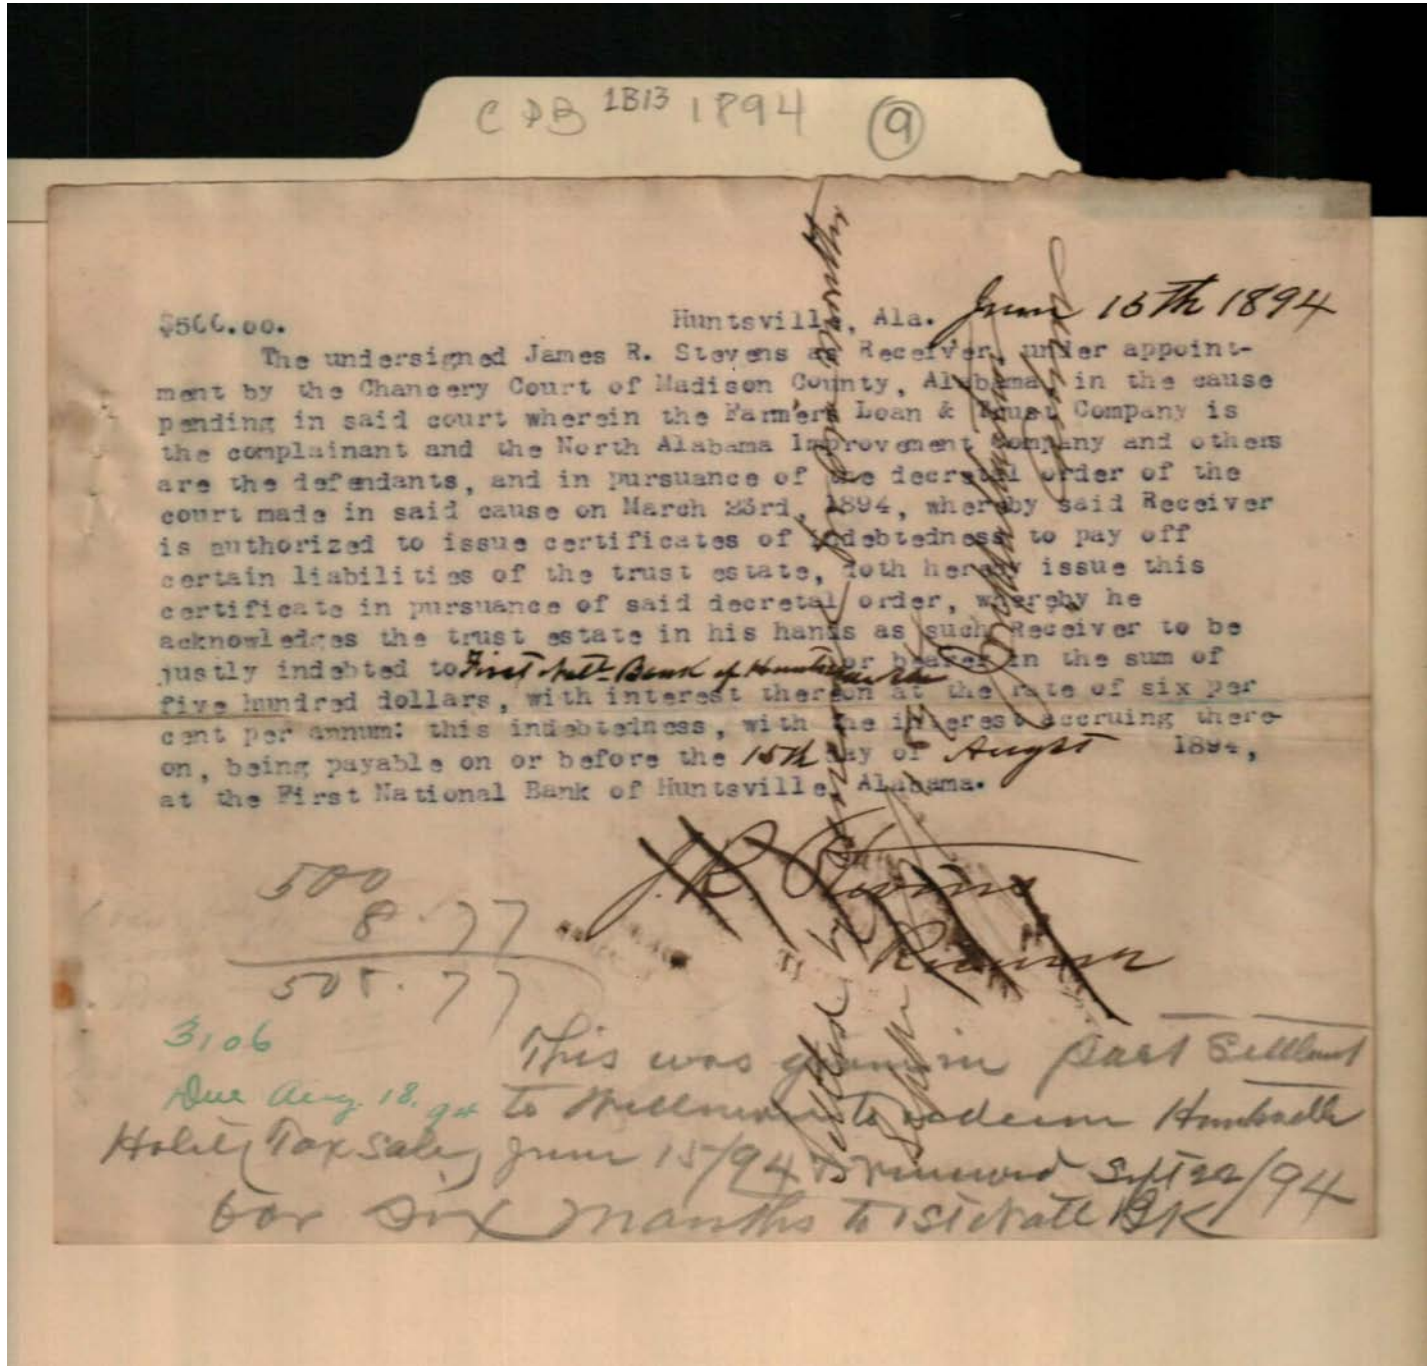 CDB 1B13 1894 9
$500.00. Huntsville, Ala. June 15th 1894
The undersigned James R. Stevens as Receiver, under appoint-
ment by the Chancery Court of Madison County, Alabama, in the cause
pending in said court wherein the Farm'ers Loan & Trust Company is
the complainant and the North Alabama Improvement Company and others
are the defendants, and in pursuance of the decretal order of the
court made in said cause on March 23rd, 1894, whereby said Receiver
is authorized to issue certificates of indebtedness to pay off
certain liabilities of the trust estate, doth hereby issue this
certificate in pursuance of said decretal order, whereby he
acknowledges the trust estate in his hands as such Receiver to be
justly indebted to First Natl Bank of Huntsville or bearer in the sum of
five hundred dollars, with interest thereon at the rate of six per
cent per annum: this indebtedness, with the interest accruing there-
on, being payable on or before the 15th day of Augst 1894,
at the First National Bank of Huntsville, Alabama.
J. R. Stevens
Receiver
500
8.77
508.77
3106
Due Aug. 18. 94
This was given in part Settlemt
to Wellman to redeem Huntsville
Hotel Tax Sale June 15/94 & renewed Sept 22/94
for Six months to 1st Natl Bk
Settled by renewal for six months